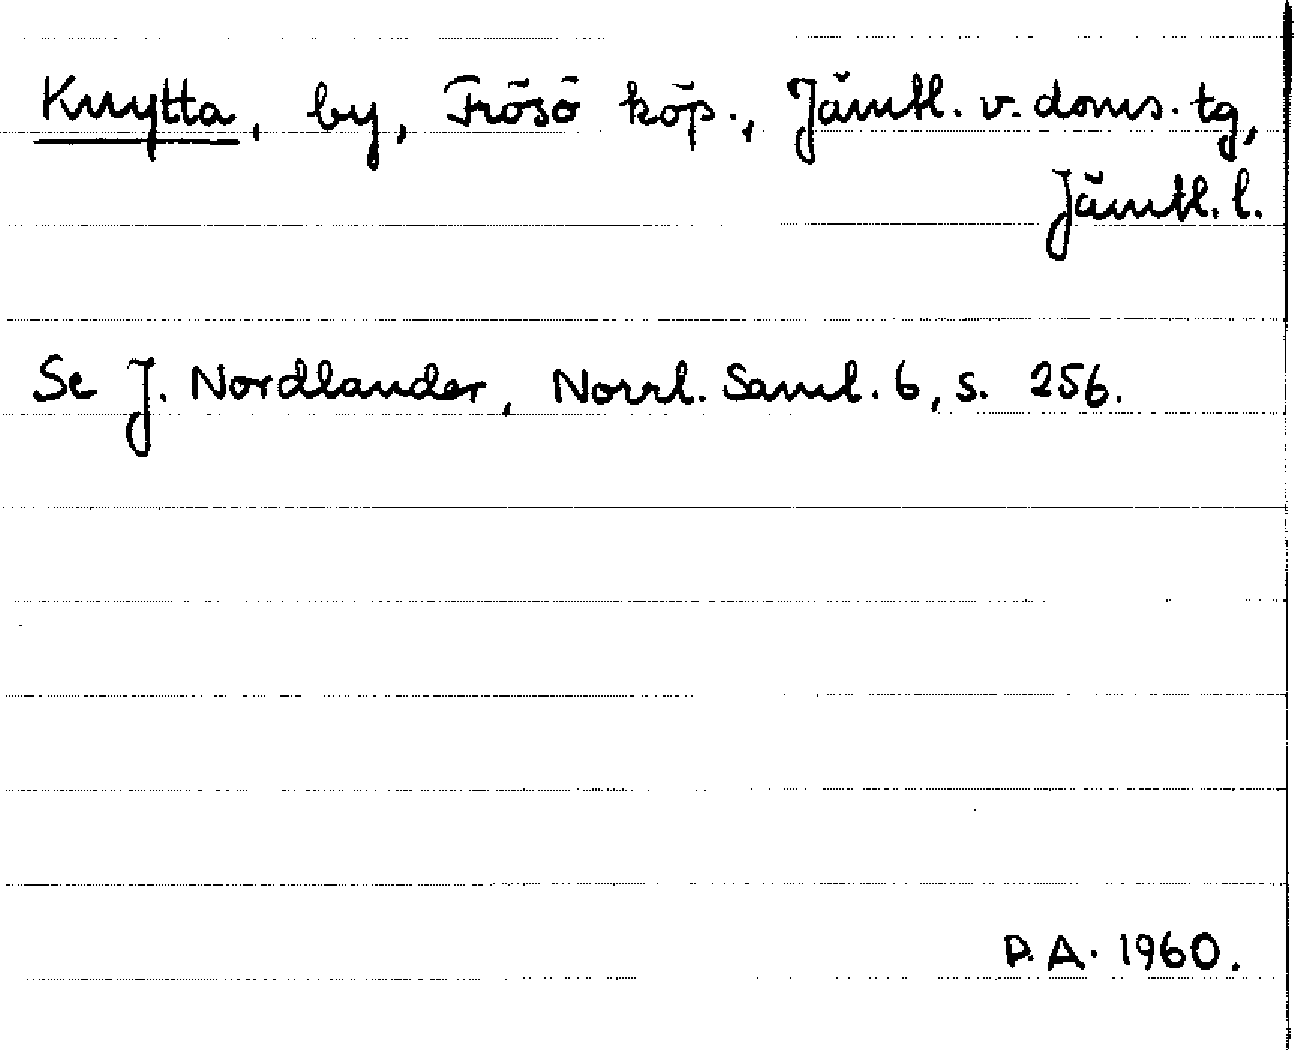 Knytta, by, Frösö köp., Jämtl. v. doms. tg,
Jämtl. l.
Se J. Nordlander, Norrl. Saml. 6, s. 256.
D. A. 1960.